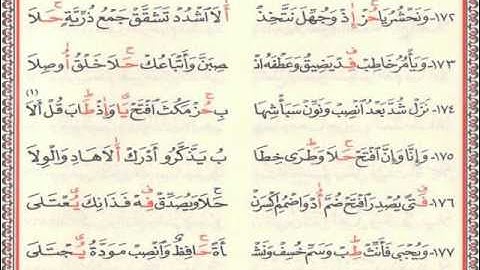 ١٧٢- وَنَحْشُرُ يَا حُزْ إِذْ وَجُهِّلَ نَتَّخِذْ أَلَا اشْدُدْ تَشَقَّقْ جَمْعُ ذُرِّيَّةٍ حَلَا
١٧٣- وَيَأْمُرُ خَاطِبْ فِدْ يَضِيقُ وَعَطْفَهُ انْ صِبَنَّ وَأَتْبَاعُكَ حَلَا خَلْقُ أُوصِلَا
١٧٤- نَزَلْ شُدَّ بَعْدُ انْصِبْ وَنَوِّنْ سَبَأْ شِهَا بِ حُزْ مَكُثَ افْتَحْ يَا وَإِذْ طَابَ قُلْ أَلَا (١)
١٧٥- وَإِنَّا وَإِنَّ افْتَحْ حَلَا وَطَرَى خِطَا بُ يَذَّكَّرُو أَدْرَكْ أَلَا هَادِ وَالْوِلَا
١٧٦- فَتًى يَصْدُرَ افْتَحْ ضُمَّ أُدْ وَاضْمُمِ اكْسِرَنْ حَلَا وَيُصَدِّقْ فِهْ فَذَانِكَ يُعْتَلَى
١٧٧- وَيُجْبَى فَأَنِّثْ طِبْ وَسَمِّ خُسِفْ وَنَشْ أَةً حَافِظٌ وَانْصِبْ مَوَدَّةُ يُجْتَلَى